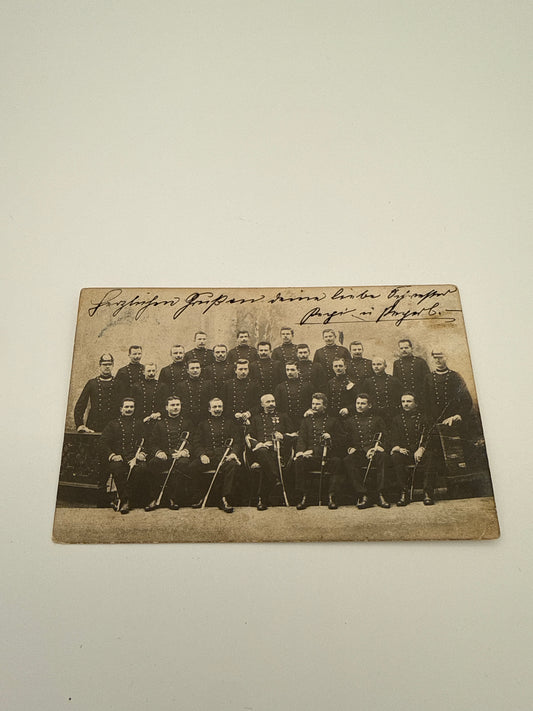 Herzlichen Gruß an deine liebe Schwester
Pepi u